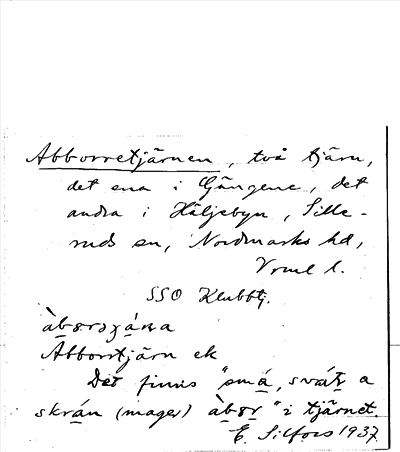 Abborretjärnen, två tjärn,
det ena i Gängene, det
andra i Häljebyn, Sille-
ruds sn, Nordmarks hd,
Vrml l.
SSO Klubbtj.
Abborrtjärn ek
Det finns "små, svátₐ a
skrán (mager) àbₐr" i tjärnet.
E. Silfors 1937.